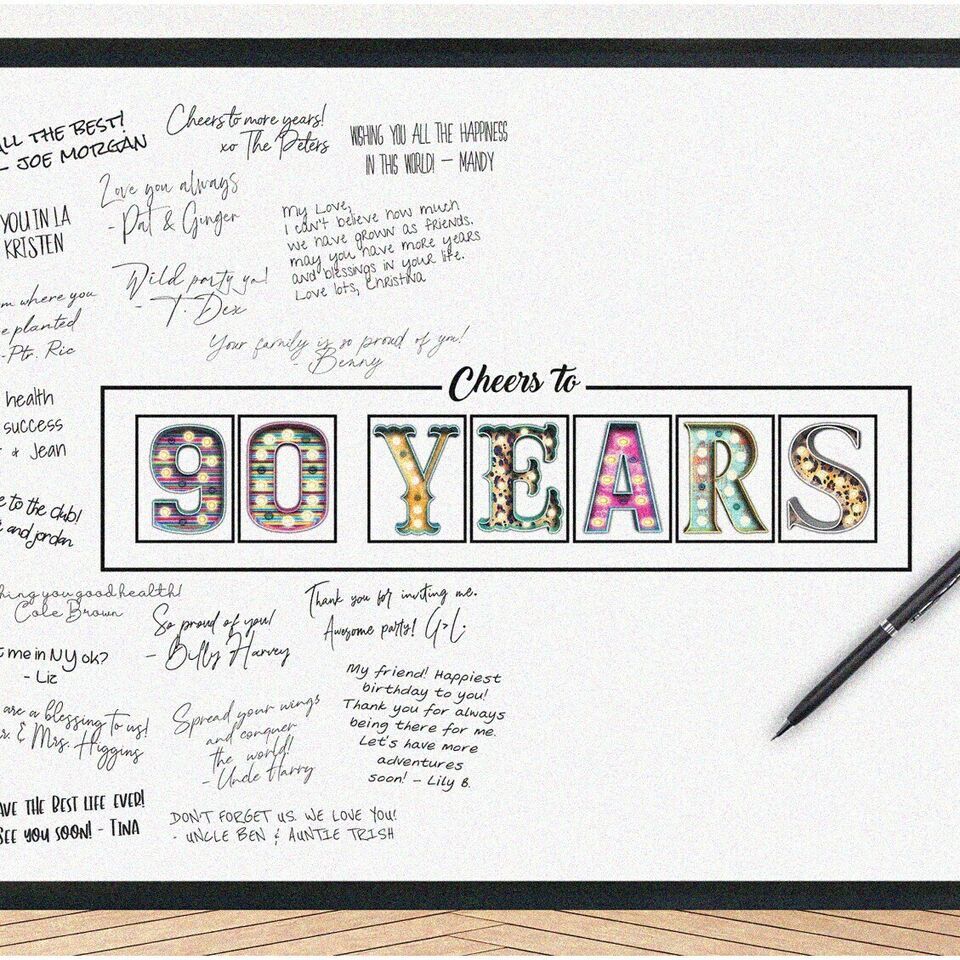 ALL THE BEST!
JOE MORGAN
Cheers to more years!
xo The Peters
WISHING YOU ALL THE HAPPINESS
IN THIS WORLD! — MANDY
YOU IN LA
KRISTEN
Love you always
- Pat & Ginger
My Love,
I can't believe how much
we have grown as friends.
may you have more years
and blessings in your life.
Love lots, Christina
where you
planted
- Ptr. Ric
Wild party ya!
- T. Dex
Your family is so proud of you!
- Benny
health
success
& Jean
to the club!
and jordan
Cheers to
90 YEARS
you good health!
Cole Brown
So proud of you!
- Billy Harvey
Thank you for inviting me.
Awesome party! G>L.
me in NY ok?
- Liz
are a blessing to us!
& Mrs. Higgins
Spread your wings
and conquer
the world!
- Uncle Harry
My friend! Happiest
birthday to you!
Thank you for always
being there for me.
Let's have more
adventures
soon! - Lily B.
THE BEST LIFE EVER!
SEE YOU SOON! - TINA
DON'T FORGET US. WE LOVE YOU!
- UNCLE BEN & AUNTIE TRISH